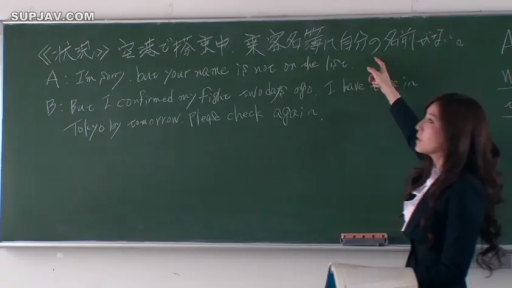 SUPJAV.COM
《状況》 空港で搭乗中、乗客名簿に自分の名前がない。
A: I'm sorry, but your name is not on the list.
B: But I confirmed my flight two days ago. I have in
Tokyo by tomorrow. Please check again.